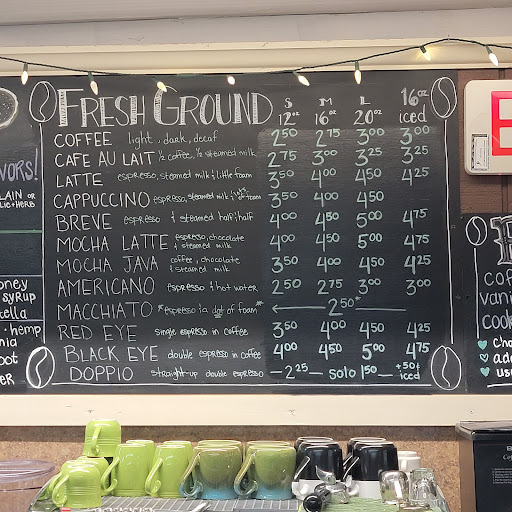 FRESH GROUND S M L 16oz
12oz 16oz 20oz iced
COFFEE light, dark, decaf 2.50 2.75 3.00 3.00
CAFE AU LAIT ½ coffee, ½ steamed milk 2.75 3.00 3.25 3.25
LATTE espresso, steamed milk & little foam 3.50 4.00 4.50 4.25
CAPPUCCINO espresso, steamed milk & lots of foam 3.50 4.00 4.50
BREVE espresso & steamed half & half 4.00 4.50 5.00 4.75
MOCHA LATTE espresso, chocolate & steamed milk 4.00 4.50 5.00 4.75
MOCHA JAVA coffee, chocolate & steamed milk 3.50 4.00 4.50 4.25
AMERICANO espresso & hot water 2.50 2.75 3.00 3.00
MACCHIATO *espresso w/a dot of foam* 2.50
RED EYE single espresso in coffee 3.50 4.00 4.50 4.25
BLACK EYE double espresso in coffee 4.00 4.50 5.00 4.75
DOPPIO straight-up double espresso -2.25- solo 1.50 - +50¢ iced
VORS!
LAIN or
syrup
hemp